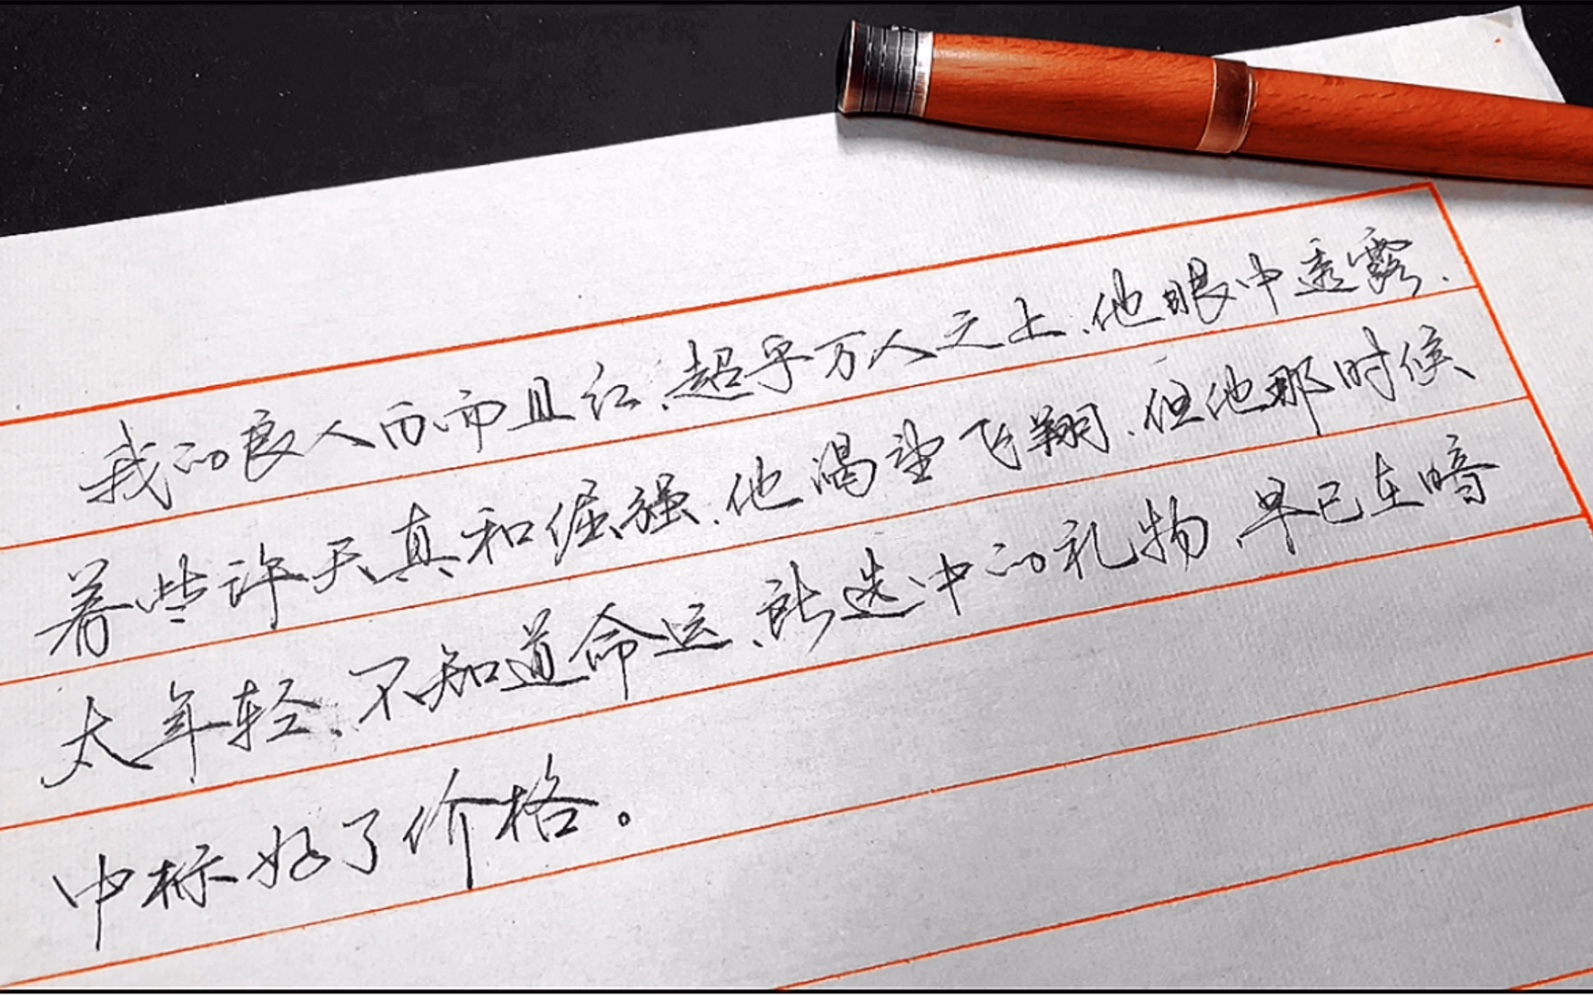 我的良人白而且红、超乎万人之上、他眼中透露、
着些许天真和倔强、他渴望飞翔、但他那时候
太年轻、不知道命运、所选中的礼物、早已在暗
中标好了价格。